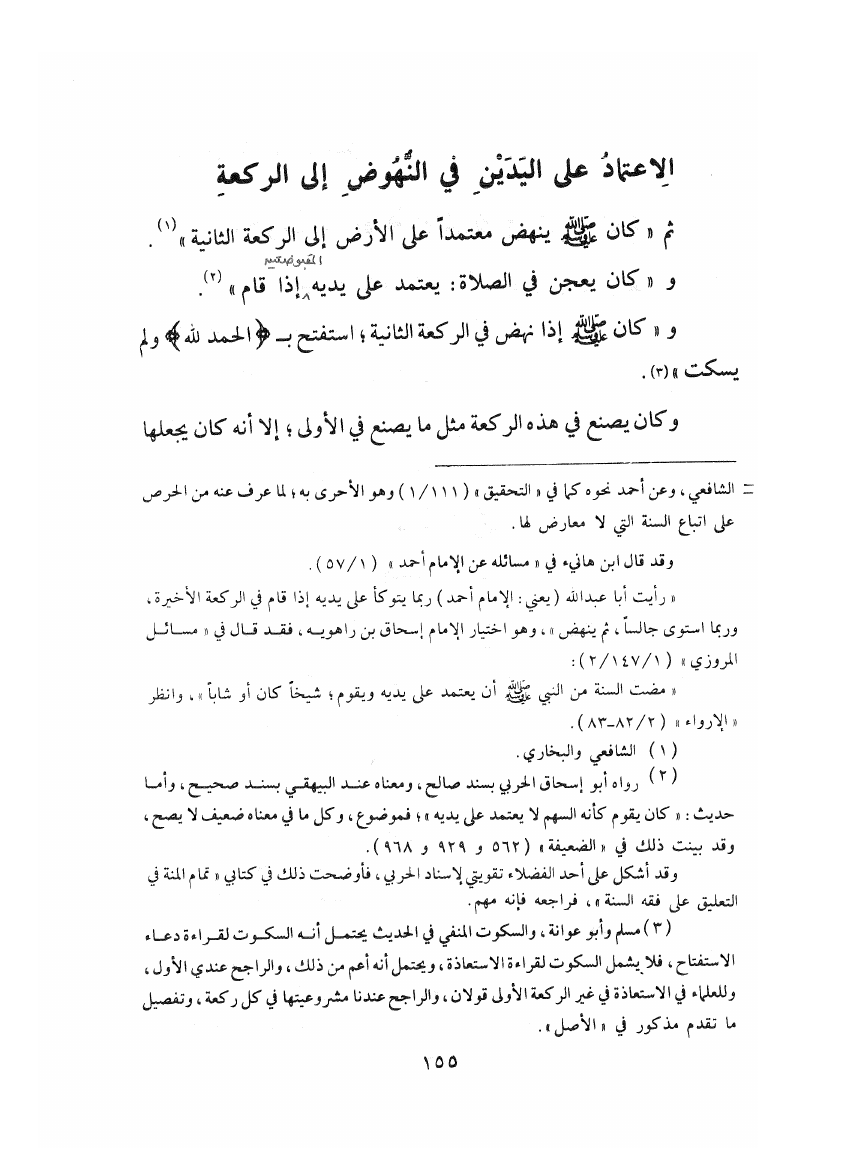 الاِعتمادُ على اليَدَيْنِ في النُّهُوضِ إلى الركعةِ
ثم « كان ﷺ ينهض معتمداً على الأرض إلى الركعة الثانية »(١).
و « كان يعجن في الصلاة : يعتمد على يديه إذا قام »(٢).
و « كان ﷺ إذا نهض في الركعة الثانية ؛ استفتح بـ ﴿ الحمد لله ﴾ ولم
يسكت »(٣).
وكان يصنع في هذه الركعة مثل ما يصنع في الأولى ؛ إلا أنه كان يجعلها
= الشافعي ، وعن أحمد نحوه كما في « التحقيق » ( ١/١١١ ) وهو الأحرى به ؛ لما عرف عنه من الحرص
على اتباع السنة التي لا معارض لها .
وقد قال ابن هانيء في « مسائله عن الإمام أحمد » ( ٥٧/١ ) .
« رأيت أبا عبدالله ( يعني : الإمام أحمد ) ربما يتوكأ على يديه إذا قام في الركعة الأخيرة ،
وربما استوى جالساً ، ثم ينهض » ، وهو اختيار الإمام إسحاق بن راهويه ، فقد قال في « مسائل
المروزي » ( ٢/١٤٧/١ ) :
« مضت السنة من النبي ﷺ أن يعتمد على يديه ويقوم ؛ شيخاً كان أو شاباً » ، وانظر
« الإرواء » ( ٨٢/٢-٨٣ ) .
(١) الشافعي والبخاري .
(٢) رواه أبو إسحاق الحربي بسند صالح ، ومعناه عند البيهقي بسند صحيح ، وأما
حديث : « كان يقوم كأنه السهم لا يعتمد على يديه » ؛ فموضوع ، وكل ما في معناه ضعيف لا يصح ،
وقد بينت ذلك في « الضعيفة » ( ٥٦٢ و ٩٢٩ و ٩٦٨ ) .
وقد أشكل على أحد الفضلاء تقويتي لإسناد الحربي ، فأوضحت ذلك في كتابي « تمام المنة في
التعليق على فقه السنة » ، فراجعه فإنه مهم .
(٣) مسلم وأبو عوانة ، والسكوت المنفي في الحديث يحتمل أنه السكوت لقراءة دعاء
الاستفتاح ، فلا يشمل السكوت لقراءة الاستعاذة ، ويحتمل أنه أعم من ذلك ، والراجح عندي الأول ،
وللعلماء في الاستعاذة في غير الركعة الأولى قولان ، والراجح عندنا مشروعيتها في كل ركعة ، وتفصيل
ما تقدم مذكور في « الأصل » .
١٥٥